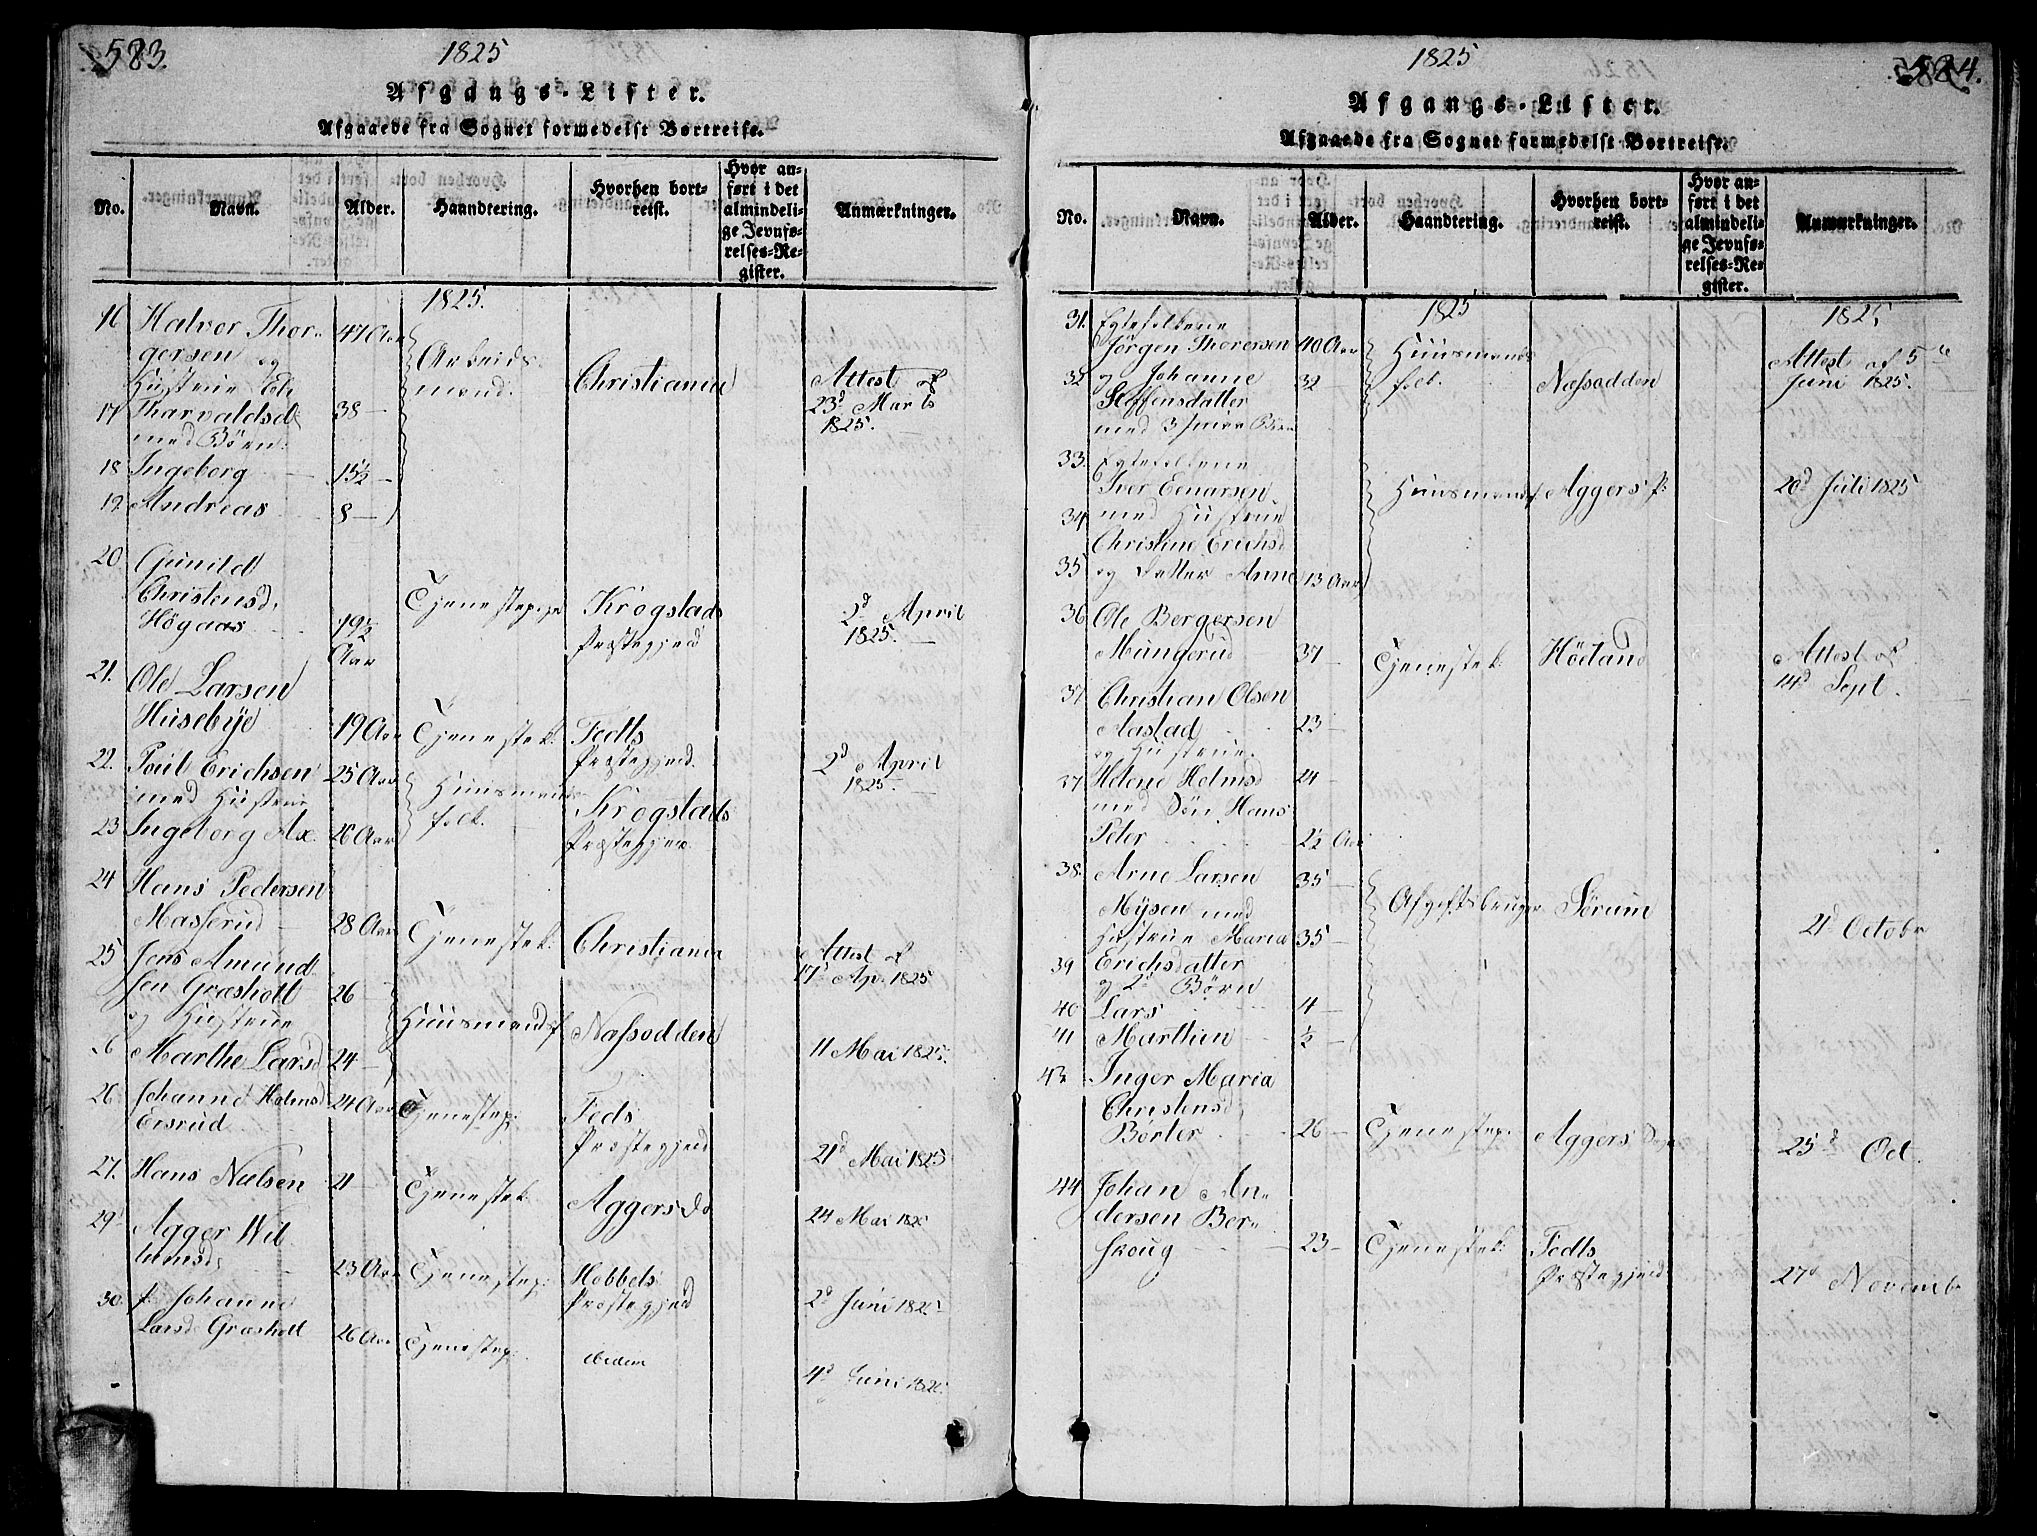 583.
1825
Afgangs-Lister.
Afgaaede fra Sognet formedelst Bortreise.
No. Navn. Alder. Haandtering. Hvorhen bortreist. Hvor anført i det almindelige Jevnførelses-Register. Anmærkninger.
1825.
16 Halvor Thor- 47 Aar
gersen og Arbeids-
Hustrue Eli mand. Christiania Attest af
17 Tharvaldsd 38 — 23d Marts
med Børn. 1825.
18 Ingeborg — 15½ —
19 Andreas 8 —
20 Gunild
Christensd. Tjenestepige Krogstads 2d April
Högaas 19½ Aar Præstegjeld 1825. —
21. Ole Larsen
Husebye 19 Aar Tjenestek. Fedts
Præstegjeld. 2d April
22. Poul Erichsen 25 Aar Huusmands- 1825. —
med Hustrue folk. Krogstads
23 Ingeborg Ax. 26 Aar Præstegjeld
24 Hans Pedersen
Masserud 28 Aar Tjenestek. Christiania Attest af
25 Jens Amund- 17d Ap. 1825
sen Græsholt 26
og Hustrue Huusmandsf. Nassodden
26 Marthe Larsd 24 — 11 Mai 1825.
26 Johanne Holmsd 24 Aar Tjenestep. Feds
Ersrud Præstegjeld
21d Mai 1825
27. Hans Nielsen 21 — Tjenestek. Aggers do
24 Mai 1825
29 Agger Wil-
lumsd. 23 Aar Tjenestep. Hobbels
Præstegjeld 2d Juni 1825
30. p. Johanne
Larsd. Græsholt 26 Aar Tjenestep. ibidem
4d Juni 1825.
584.
1825
Afgangs-Lister.
Afgaaede fra Sognet formedelst Bortreise.
No. Navn. Alder. Haandtering. Hvorhen bortreist. Hvor anført i det almindelige Jevnførelses-Register. Anmærkninger.
1825 1825
31. Egtefolkene
Jörgen Thoversen 40 Aar Huusmands- Attest af 5te
32 og Johanne 32 — folk. Næsodden Juni 1825.
Steffensdatter
med 3 smaa Børn
33. Egtefolkene
Iver Eenarsen Huusmandsf. Aggers p. 20d Juli 1825
34 med Hustrue
Christine Erichsd
35 og Datter Anne 13 Aar
36 Ole Bergersen
Mungerud 37 — Tjenestek. Höeland Attest af
14d Sept.
37 Christian Olsen
Aastad 23 —
og Hustrue
37 Helene Holmsd 24 —
med Sön Hans
Peter 2½ Aar
38. Arne Larsen 35 —
Mysen med Afgiftsbruger Sørum
Hustrue Maria 35 — 21d Octobr
39 Erichsdatter
og 2d Børn
40 Lars 4 —
41 Marthin ½ —
43 Inger Maria
Christensd.
Börter 26 — Tjenestep. Aggers
25d Oct.
44 Johan An-
dersen Ber-
skoug 23 — Tjenestek. Fedts
Præstegjeld 27d Novemb